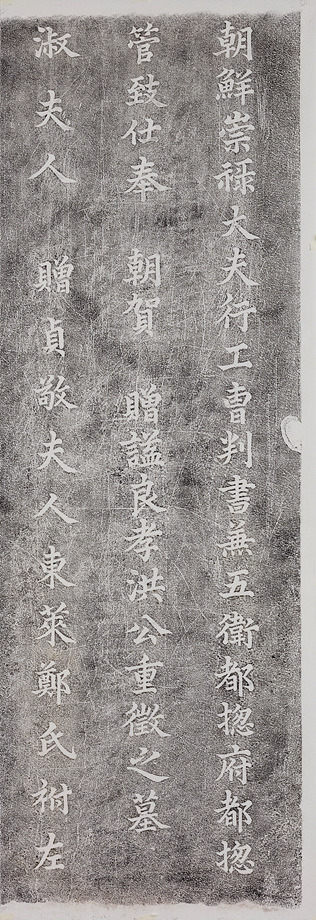 朝鮮崇祿大夫行工曺判書兼五衛都揔府都揔
管致仕奉 朝賀 贈謚良孝洪公重徵之墓
淑夫人 贈貞敬夫人東萊鄭氏祔左